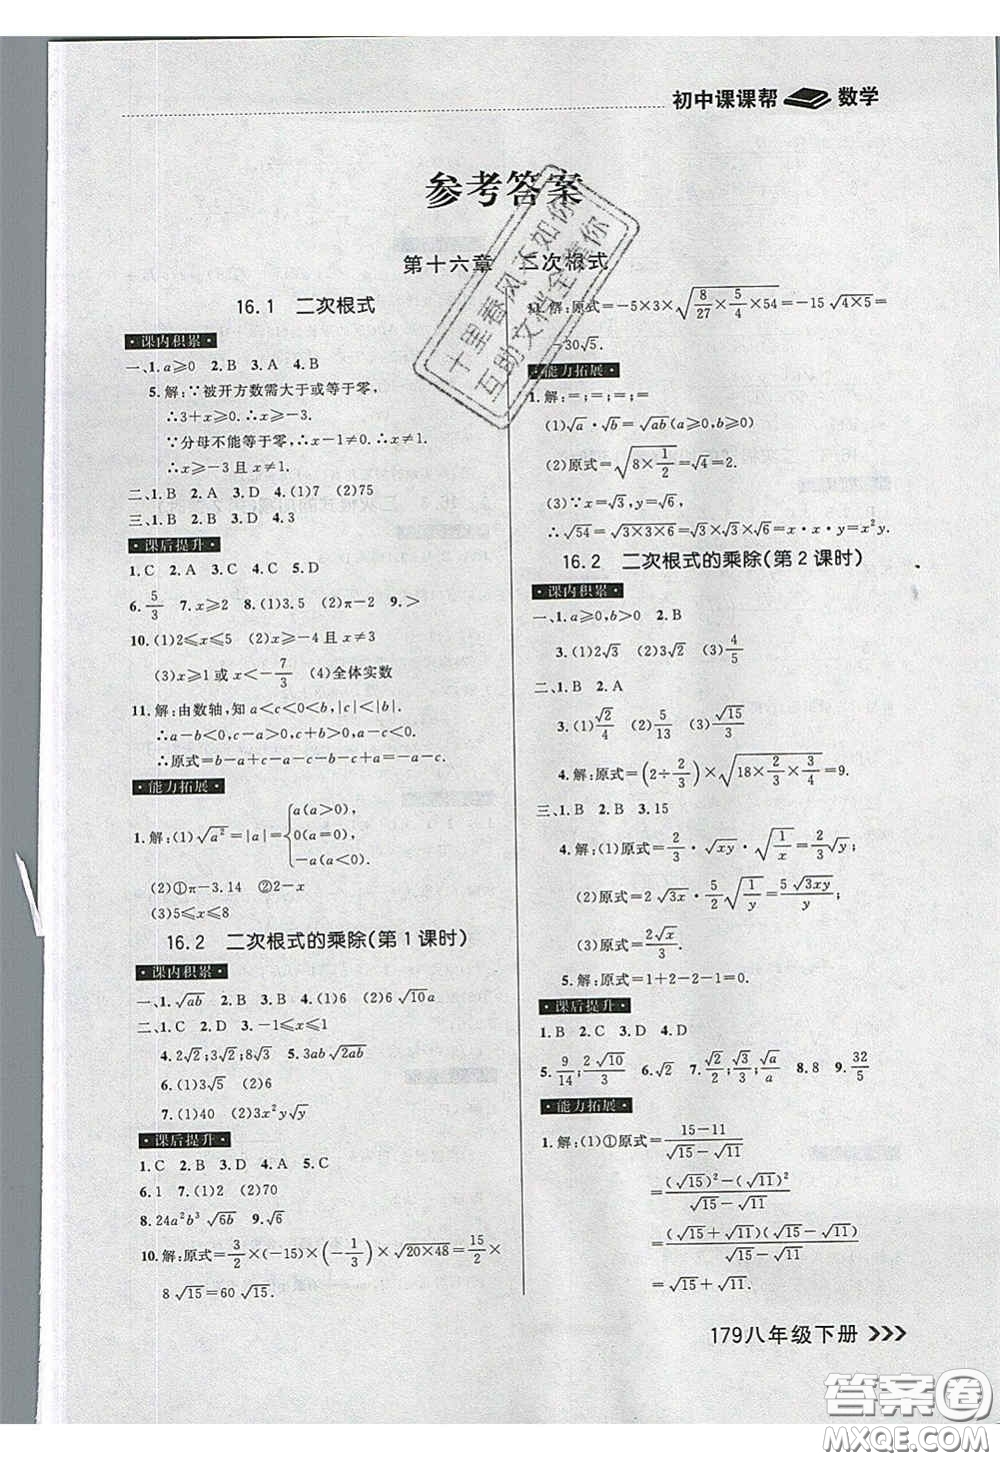 初中课课帮 数学
参考答案
第十六章 二次根式
16.1 二次根式
课内积累
一、1.a≥0 2.B 3.A 4.B
5.解:∵被开方数需大于或等于零,
∴3+x≥0.∴x≥-3.
∵分母不能等于零,∴x-1≠0.∴x≠1.
∴x≥-3且x≠1.
二、1.B 2.A 3.D 4.(1)7 (2)75
三、1.B 2.D 3.D 4.3
课后提升
1.C 2.A 3.C 4.C 5.D
6.5/3 7.x≥2 8.(1)3.5 (2)π-2 9.>
10.(1)2≤x≤5 (2)x≥-4且x≠3
(3)x≥1或x<-7/3 (4)全体实数
11.解:由数轴,知a<c<0<b,|c|<|b|.
∴a-b<0,c-a>0,b+c>0,a-c<0.
∴原式=b-a+c-a-b-c+a-c=-a-c.
能力拓展
1.解:(1)√a²=|a|={a(a>0), 0(a=0), -a(a<0).
(2)①π-3.14 ②2-x
(3)5≤x≤8
16.2 二次根式的乘除(第1课时)
课内积累
一、1.√ab 2.B 3.B 4.(1)6 (2)6√10a
二、1.C 2.D 3.-1≤x≤1
4.2√2;3√2;8√3 5.3ab√2ab
6.(1)3√5 (2)6
7.(1)40 (2)3x²y√y
课后提升
1.C 2.B 3.D 4.A 5.C
6.1 7.(1)2 (2)70
8.24a²b³√6b 9.√6
10.解:原式=3/2×(-15)×(-1/3)×√20×48=15/2×
8√15=60√15.
11.解:原式=-5×3×√(8/27×5/4×54)=-15√4×5=
-30√5.
能力拓展
1.解:=;=;=;=
(1)√a·√b=√ab(a≥0,b≥0)
(2)原式=√(8×1/2)=√4=2.
(3)∵x=√3,y=√6,
∴√54=√3×3×6=√3×√3×√6=x·x·y=x²y.
16.2 二次根式的乘除(第2课时)
课内积累
一、1.a≥0,b>0 2.B
3.(1)2√3 (2)3√2 (3)4/5
二、1.B 2.A
3.(1)√2/4 (2)5/13 (3)√15/3
4.解:原式=(2÷2/3)×√(18×2/3×3/4)=9.
三、1.B 2.B 3.15
4.解:(1)原式=2/3·√xy·√(1/x)=2/3√y;
(2)原式=2√3x·5/2√(1/y)=5√3xy/y;
(3)原式=2√x/3.
5.解:原式=1+2-2-1=0.
课后提升
1.B 2.C 3.D 4.D
5.9/14;2√10/3 6.√2 7.√2/2;√3/3;√a/a 8.8 9.32/5
能力拓展
1.解:(1)①原式=(15-11)/(√15-√11)
=((√15)²-(√11)²)/(√15-√11)
=(√15+√11)(√15-√11)/(√15-√11)
=√15+√11.
179八年级下册
十里春风不如你
互助文档全集你
答案圈
MXQE.COM